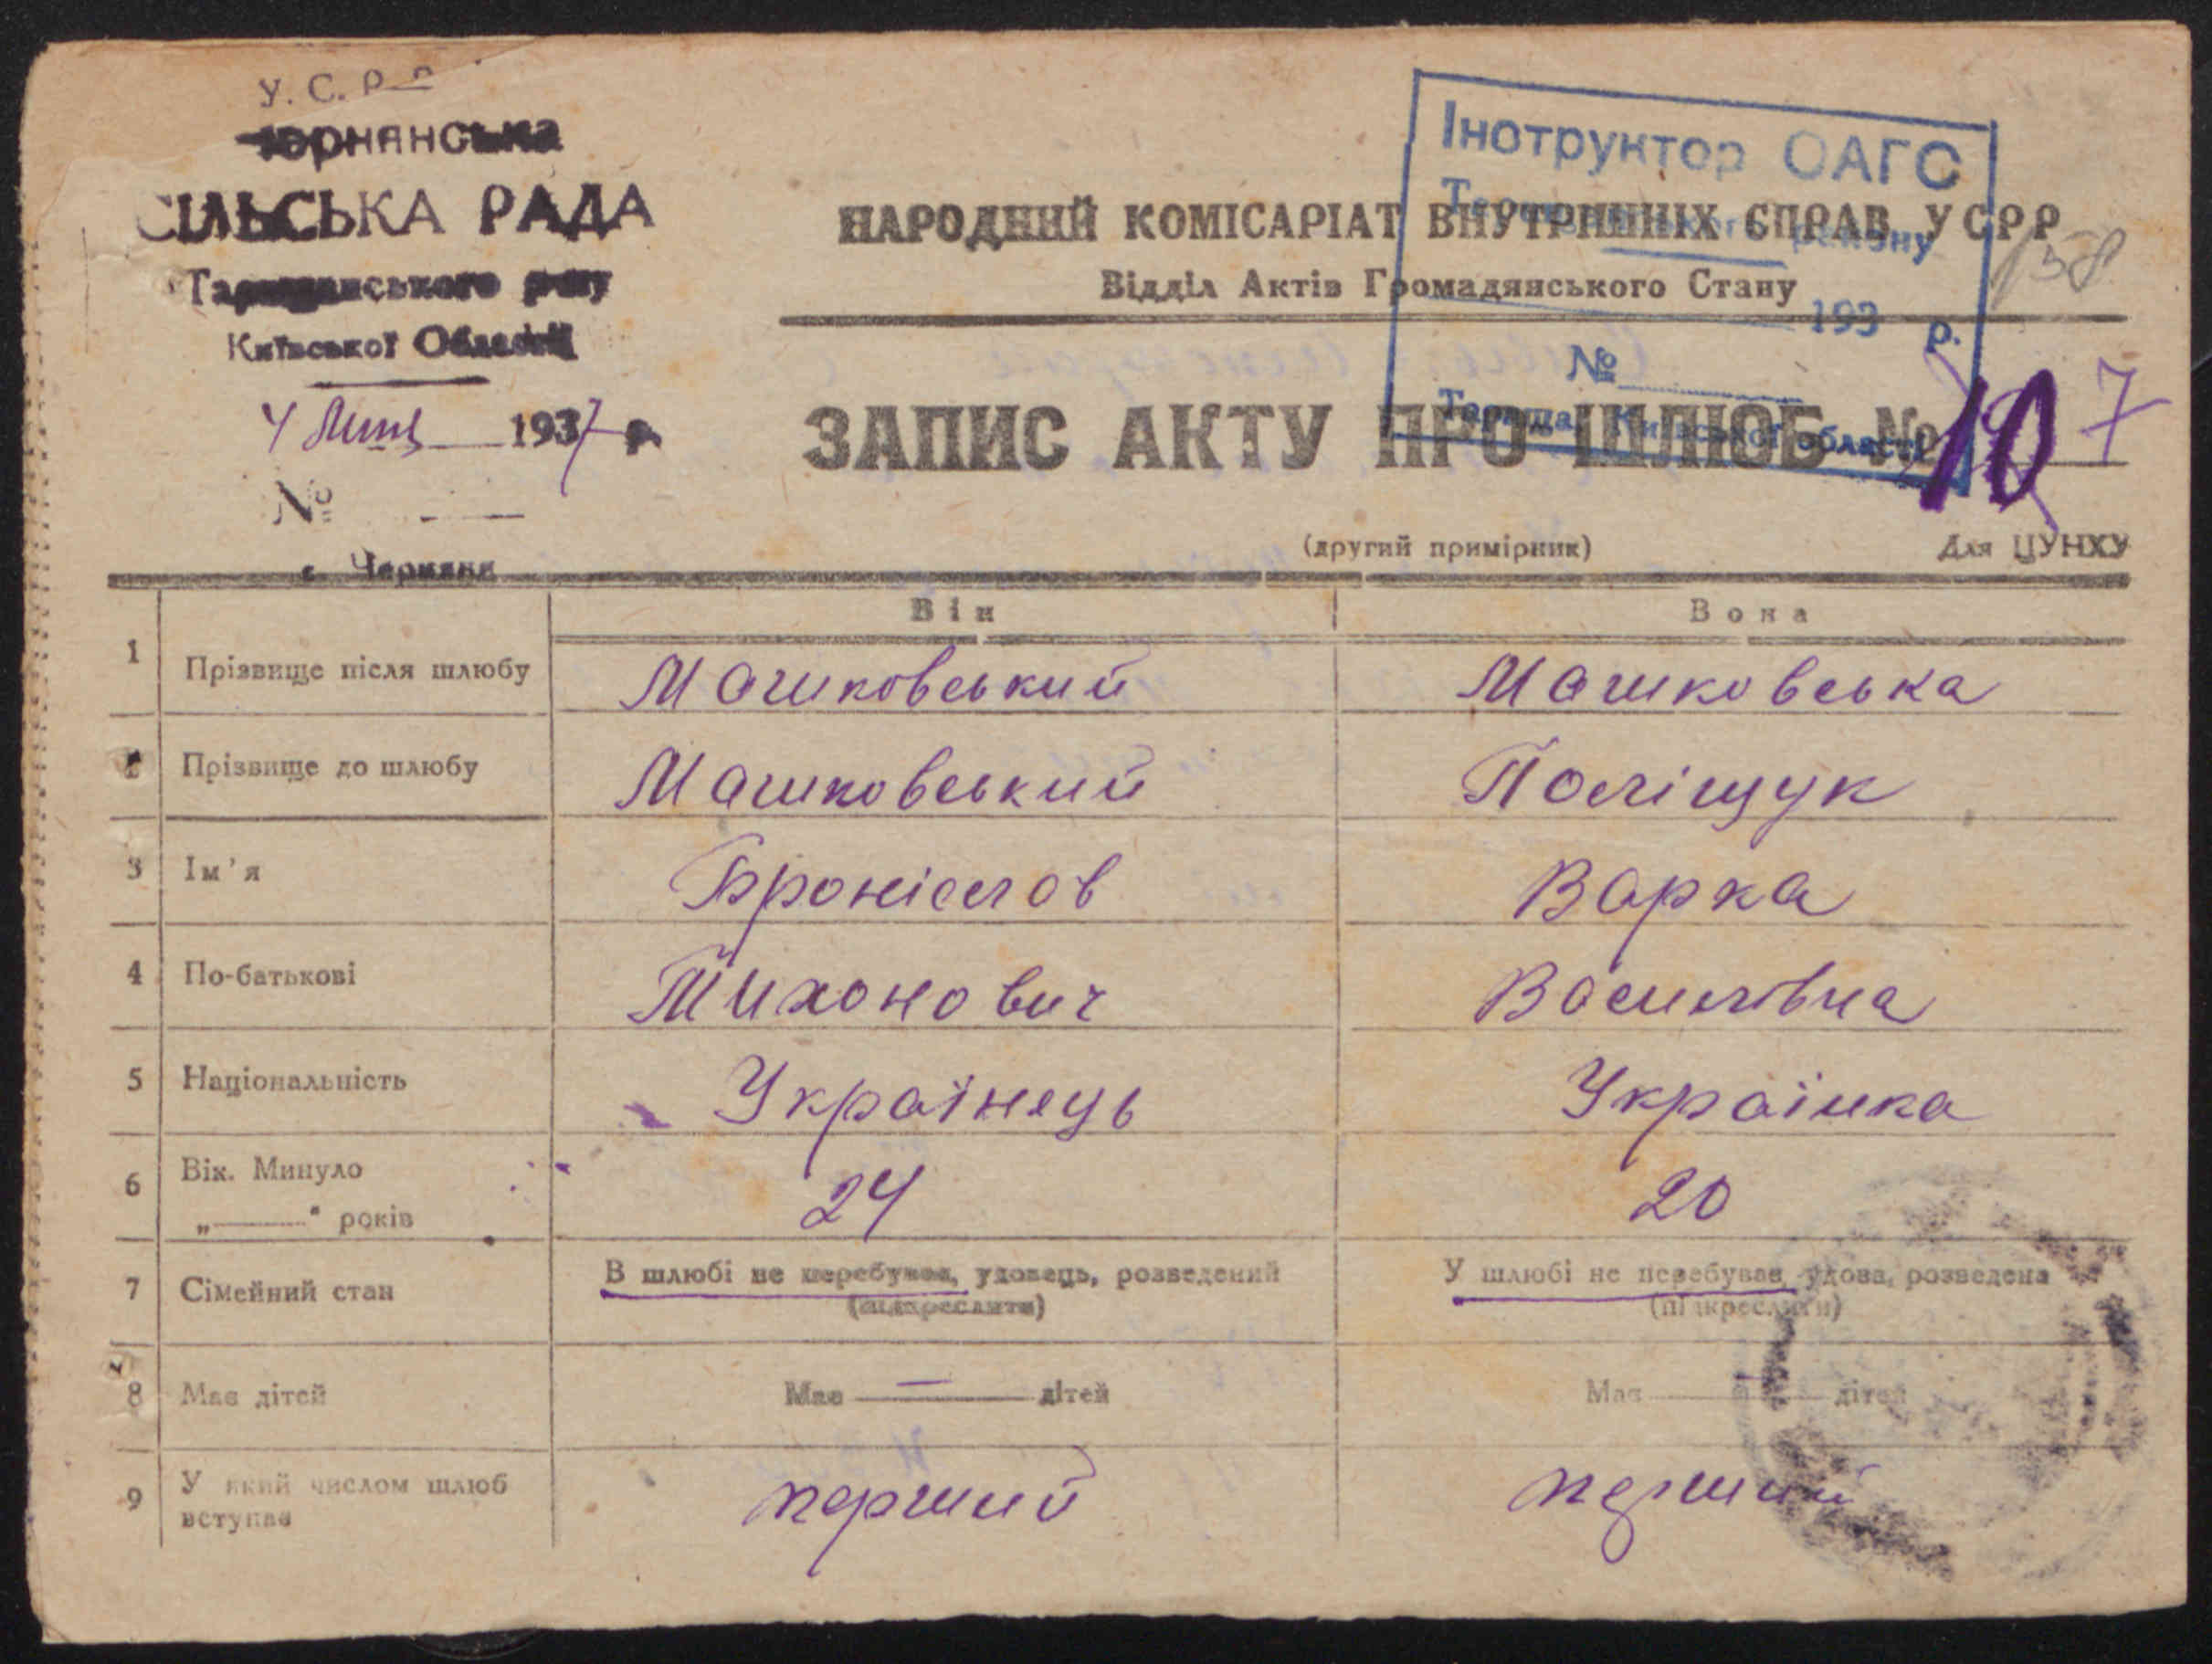 У. С. Р. Р.
СІЛЬСЬКА РАДА
Таращанського р-ну
Київської Області
4 Лип 1937 р.
№
с. Черняни
Інструктор ОАГС
району
193 р.
№
Тараща, Київської області
158
НАРОДНИЙ КОМІСАРІАТ ВНУТРІШНІХ СПРАВ УСРР
Відділ Актів Громадянського Стану
ЗАПИС АКТУ ПРО ШЛЮБ № 10 7
(другий примірник) Для ЦУНХУ
Він Вона
1 Прізвище після шлюбу Машковський Машковська
2 Прізвище до шлюбу Машковський Поліщук
3 Ім'я Броніслав Варка
4 По-батькові Тихонович Василівна
5 Національність Українець Українка
6 Вік. Минуло 24 20
„———“ років
7 Сімейний стан В шлюбі не перебував, удовець, розведений У шлюбі не перебував, удова, розведена
(підкреслити) (підкреслити)
8 Має дітей Має — дітей Має дітей
9 У який числом шлюб перший перший
вступає